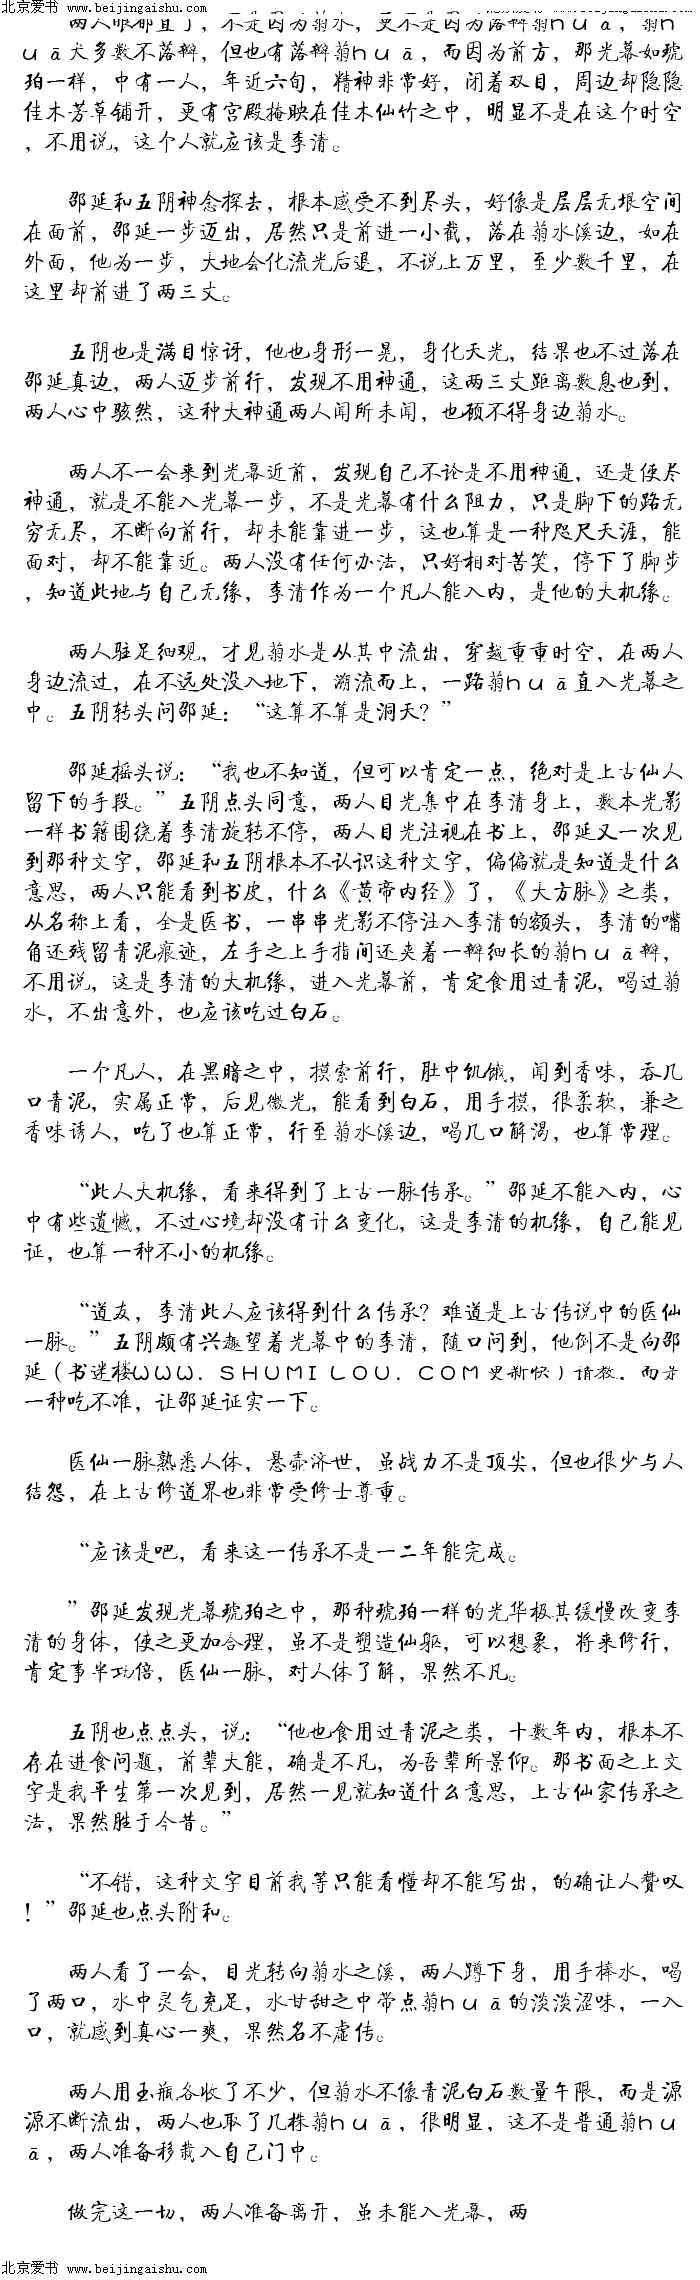 北京爱书 www.beijingaishu.com
两人眼都直了，不是因为蒭水，更不是因为落瓣蒭huā，蒭h
uā大多数不落瓣，但也有落瓣蒭huā，而因为前方，那光幕如琥
珀一样，中有一人，年近六旬，精神非常好，闭着双目，周边却隐隐
佳木芳草铺开，更有宫殿掩映在佳木仙竹之中，明显不是在这个时空
，不用说，这个人就应该是李清。
邵延和五阴神念探去，根本感受不到尽头，好像是层层无垠空间
在面前，邵延一步迈出，居然只是前进一小截，落在蒭水溪边，如在
外面，他为一步，大地会化流光后退，不说上万里，至少数千里，在
这里却前进了两三丈。
五阴也是满目惊讶，他也身形一晃，身化天光，结果也不过落在
邵延真边，两人迈步前行，发现不用神通，这两三丈距离数息也到，
两人心中骇然，这种大神通两人闻所未闻，也顾不得身边蒭水。
两人不一会来到光幕近前，发现自己不论是不用神通，还是使尽
神通，就是不能入光幕一步，不是光幕有什么阻力，只是脚下的路无
穷无尽，不断向前行，却未能靠进一步，这也算是一种咫尺天涯，能
面对，却不能靠近。两人没有任何办法，只好相对苦笑，停下了脚步
，知道此地与自己无缘，李清作为一个凡人能入内，是他的大机缘。
两人驻足细观，才见蒭水是从其中流出，穿越重重时空，在两人
身边流过，在不远处没入地下，溯流而上，一路蒭huā直入光幕之
中。五阴转头问邵延：“这算不算是洞天？”
邵延摇头说：“我也不知道，但可以肯定一点，绝对是上古仙人
留下的手段。”五阴点头同意，两人目光集中在李清身上，数本光影
一样书籍围绕着李清旋转不停，两人目光注视在书上，邵延又一次见
到那种文字，邵延和五阴根本不认识这种文字，偏偏就是知道是什么
意思，两人只能看到书皮，什么《黄帝内经》了，《大方脉》之类，
从名称上看，全是医书，一串串光影不停注入李清的额头，李清的嘴
角还残留青泥痕迹，左手之上手指间还夹着一瓣细长的蒭huā瓣，
不用说，这是李清的大机缘，进入光幕前，肯定食用过青泥，喝过蒭
水，不出意外，也应该吃过白石。
一个凡人，在黑暗之中，摸索前行，肚中饥饿，闻到香味，吞几
口青泥，实属正常，后见微光，能看到白石，用手摸，很柔软，兼之
香味诱人，吃了也算正常，行至蒭水溪边，喝几口解渴，也算常理。
“此人大机缘，看来得到了上古一脉传承。”邵延不能入内，心
中有些遗憾，不过心境却没有计么变化，这是李清的机缘，自己能见
证，也算一种不小的机缘。
“道友，李清此人应该得到什么传承？难道是上古传说中的医仙
一脉。”五阴颇有兴趣望着光幕中的李清，随口问到，他倒不是向邵
延（书迷楼WWW．SHUMILOU．COM更新快）请教，而是
一种吃不准，让邵延证实一下。
医仙一脉熟悉人体，悬壶济世，虽战力不是顶尖，但也很少与人
结怨，在上古修道界也非常受修士尊重。
“应该是吧，看来这一传承不是一二年能完成。
”邵延发现光幕琥珀之中，那种琥珀一样的光华极其缓慢改变李
清的身体，使之更加合理，虽不是塑造仙躯，可以想象，将来修行，
肯定事半功倍，医仙一脉，对人体了解，果然不凡。
五阴也点点头，说：“他也食用过青泥之类，十数年内，根本不
存在进食问题，前辈大能，确是不凡，为吾辈所景仰。那书面之上文
字是我平生第一次见到，居然一见就知道什么意思，上古仙家传承之
法，果然胜于今昔。”
“不错，这种文字目前我等只能看懂却不能写出，的确让人赞叹
！”邵延也点头附和。
两人看了一会，目光转向蒭水之溪，两人蹲下身，用手捧水，喝
了两口，水中灵气充足，水甘甜之中带点蒭huā的淡淡涩味，一入
口，就感到真心一爽，果然名不虚传。
两人用玉瓶各收了不少，但蒭水不像青泥白石数量午限，而是源
源不断流出，两人也取了几株蒭huā，很明显，这不是普通蒭hu
ā，两人准备移栽入自己门中。
做完这一切，两人准备离开，虽未能入光幕，两
北京爱书 www.beijingaishu.com